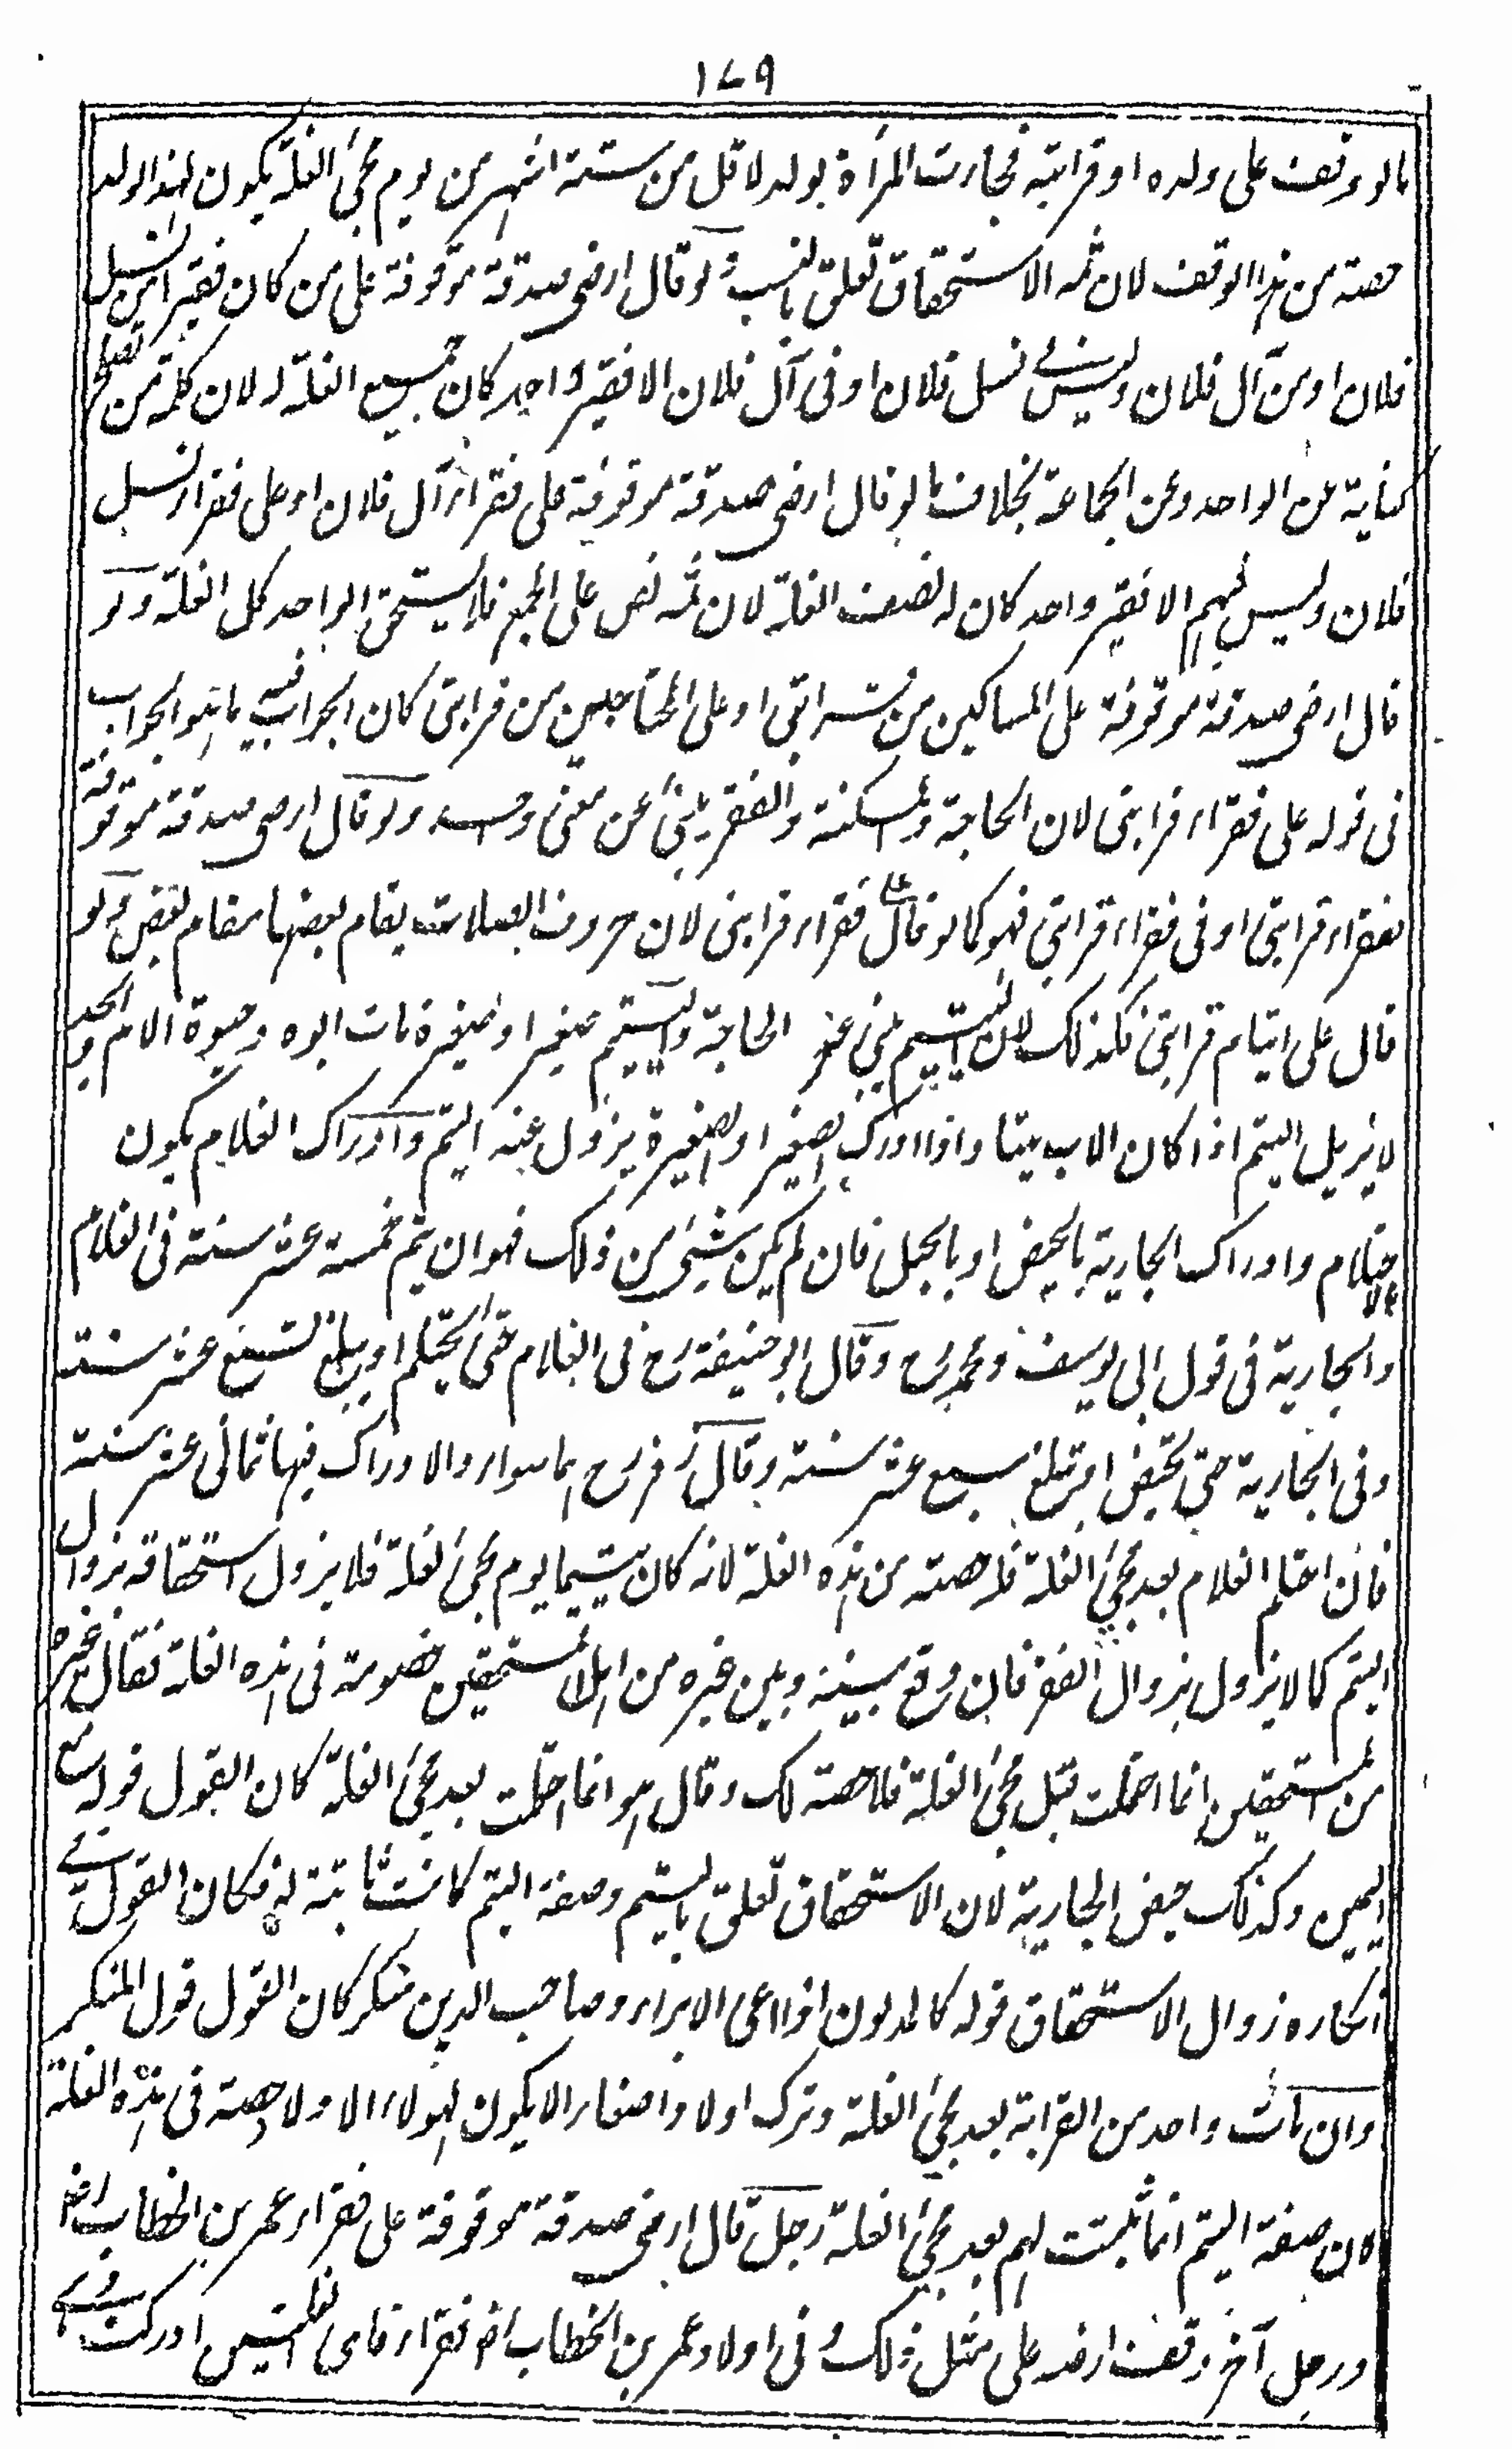 ١٧٩
ما لو وقف على ولده او قرابته فجاءت المرأة بولد لاقل من ستة اشهر من يوم مجئ الغلة يكون لهذا الولد
حصة من هذا الوقف لان ثمه الاستحقاق تعلق بالنسب ولو قال ارضى صدقة موقوفة على من كان فقيرا من نسل
فلان او من آل فلان وليس فى نسل فلان او فى آل فلان الا فقير واحد كان جميع الغلة له لان كلمة من تصلح
كناية عن الواحد وعن الجماعة بخلاف ما لو قال ارضى صدقة موقوفة على فقراء آل فلان او على فقراء نسل
فلان وليس فيهم الا فقير واحد كان له نصف الغلة لان ثمه نص على الجمع فلا يستحق الواحد كل الغلة ولو
قال ارضى صدقة موقوفة على المساكين من قرابتى او على المحتاجين من قرابتى كان الجواب فيه ما هو الجواب
فى قوله على فقراء قرابتى لان الحاجة والمسكنة والفقر ينبئ عن معنى واحد ولو قال ارضى صدقة موقوفة
لفقراء قرابتى او فى فقراء قرابتى فهو كما لو قال على فقراء قرابتى لان حروف الصلات يقام بعضها مقام بعض ولو
قال على ايتام قرابتى فكذلك لان اليتيم ينبئ عن الحاجة واليتيم صغير او صغيرة مات ابوه وحيوة الام والجد
لا يزيل اليتم اذا كان الاب ميتا واذا ادرك الصغير او الصغيرة يزول عنه اليتم وادراك الغلام يكون
بالاحتلام وادراك الجارية بالحيض او بالحبل فان لم يكن شيئ من ذلك فهو ان يتم خمسة عشر سنة فى الغلام
والجارية فى قول ابى يوسف ومحمد رح وقال ابو حنيفة رح فى الغلام حتى يحتلم او يبلغ تسع عشر سنة
وفى الجارية حتى تحيض او تبلغ سبع عشر سنة وقال زفر رح هما سواء والادراك فيهما ثمانى عشر سنة
فان احتلم الغلام بعد مجئ الغلة فله حصته من هذه الغلة لانه كان يتيما يوم مجئ الغلة فلا يزول استحقاقه بزوال
اليتم كما لا يزول بزوال الفقر فان وقع بينه وبين غيره من اهل المستحقين خصومة فى هذه الغلة فقال غيره
من المستحقين انما احتلمت قبل مجئ الغلة فلا حصة لك وقال هو انما احتلمت بعد مجئ الغلة كان القول قوله مع
اليمين وكذلك حيض الجارية لان الاستحقاق تعلق باليتم وصفة اليتم كانت ثابتة له فكان القول فى
انكاره زوال الاستحقاق قوله كالمديون اذا ادعى الابراء وصاحب الدين منكر كان القول قول المنكر
وان مات واحد من القرابة بعد مجئ الغلة وترك اولادا صغارا لا يكون لهؤلاء الاولاد حصة فى هذه الغلة
لان صفة اليتم انما ثبتت لهم بعد مجئ الغلة رجل قال ارضى صدقة موقوفة على فقراء عمر بن الخطاب رض
ورجل آخر وقف ارضه على مثل ذلك وفى اولاد عمر بن الخطاب رض فقراء فاى الغلتين ادركت